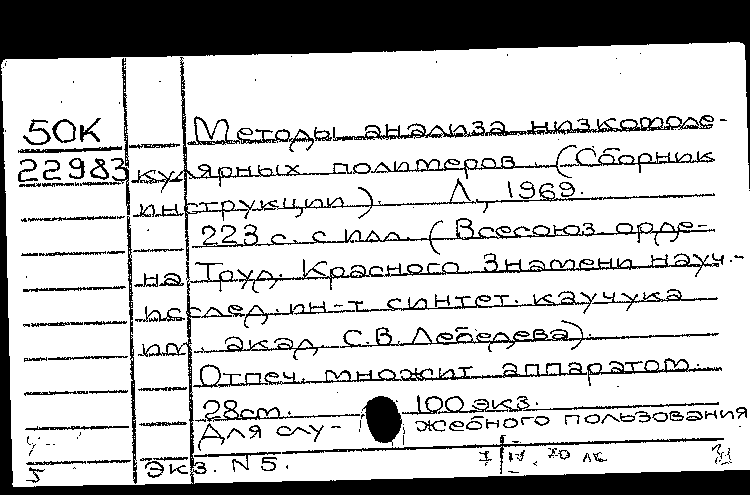 50К Методы анализа низкомоле-
22983 кулярных полимеров. (Сборник
инструкции). Л., 1969.
223 с. с илл. (Всесоюз орде-
на Труд. Красного Знамени науч.-
исслед. ин-т синтет. каучука
им. акад. С.В. Лебедева).
Отпеч. множит аппаратом.
28см. 100 экз.
Для слу- жебного пользования
5 Экз. N 5.